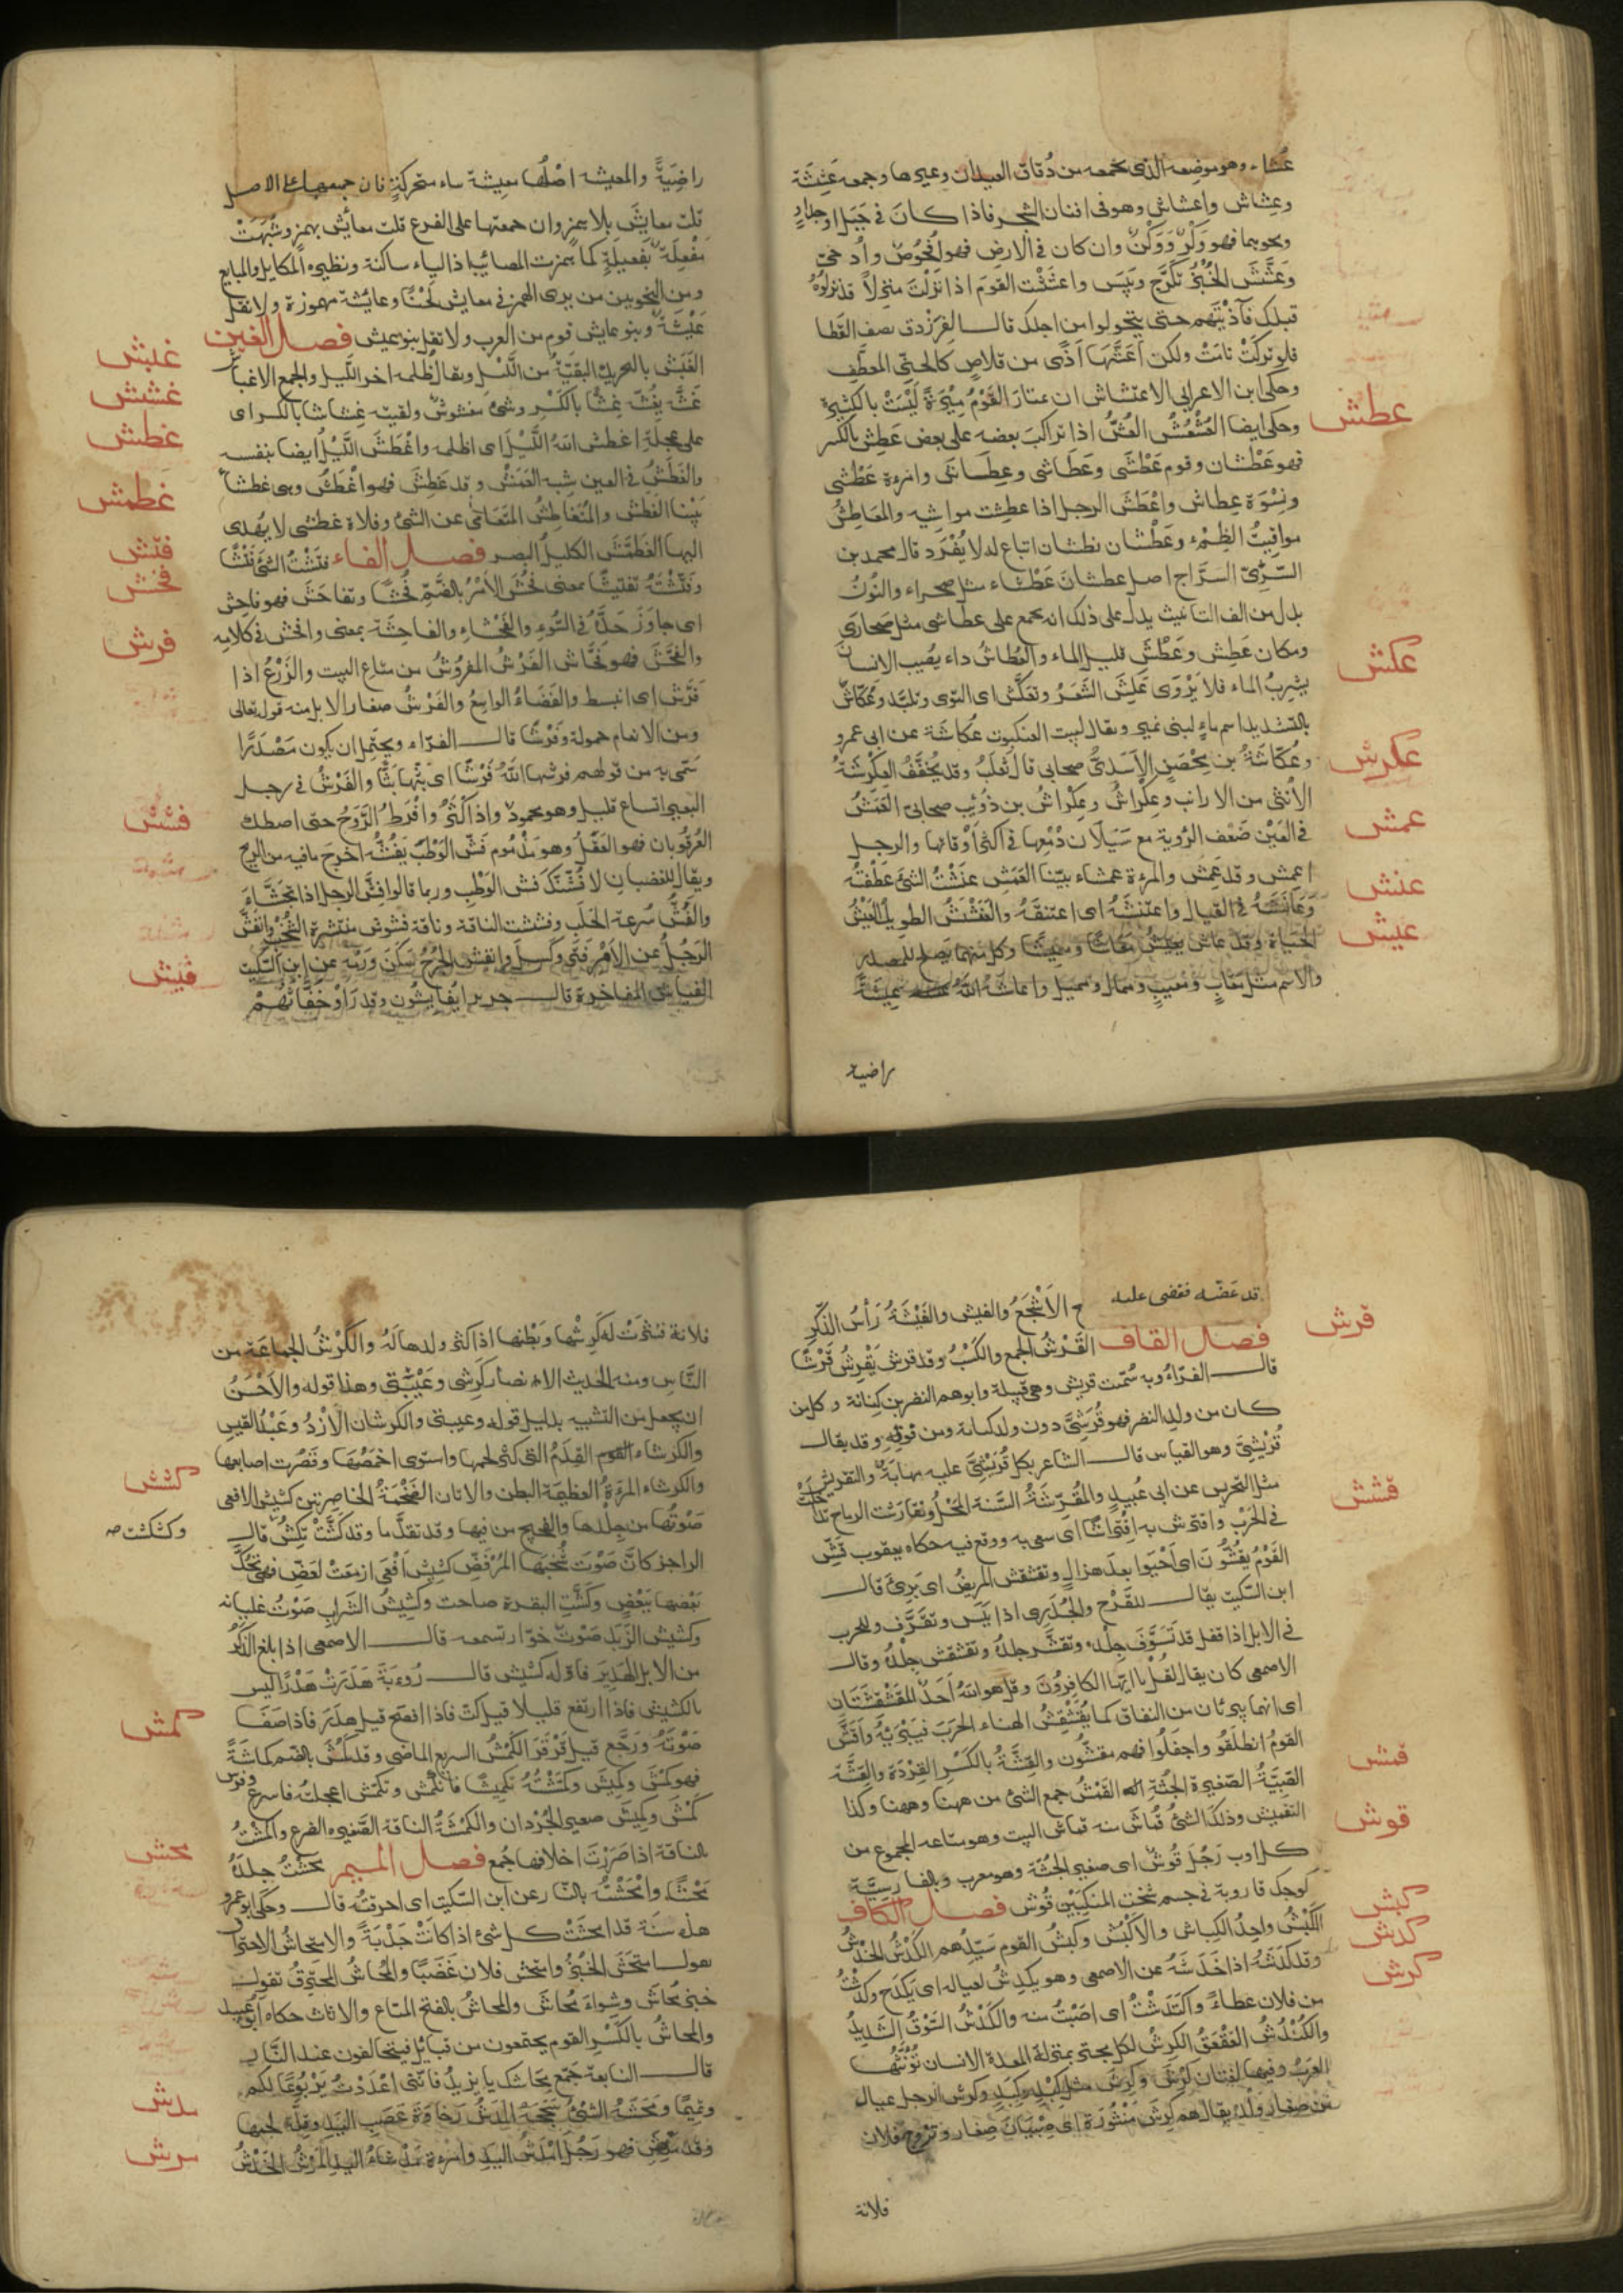 عُشّاء وهو موضعه الذى يجمعه من دُقاق العيدان وغيرها وجمعه عِشَشَة
وعِشاش واعشاش وهو فى افنان الشجر فاذا كانَ فى جَبَل او جدارٍ
ونحوهما فهو وَكْرٌ وَوَكْنٌ وان كان فى الارض فهو اُفحُوصٌ واُدحىّ
وَعَشَّشَ الخُبْزُ تَكَرَّجَ ويَبِسَ واعشَشْت القومَ اذا نَزَلْتَ منزِلاً قد نزلُوْهُ
قبلك فآذيْتَهم حتى يتحولوا من اجلك قال الفرزدق يصف القطا
فلو تُرِكَتْ نامَتْ ولكن اَعَشَّهَا اَذًى من قلاصٍ كالحنىّ المعطّفِ
وحكى ابن الاعرابى الاعتشاش ان يمتارَ القَوْمُ مِيْرَةً لَيْسَتْ بالكثيرةِ
وحكى ايضا العُشْعُشُ العُشُّ اذا تراكبَ بعضه على بعض عَطِشَ بالكسر
فهو عَطْشان وقوم عَطْشَى وعَطَاشى وعِطَاش وامرءة عَطْشى
ونِسْوَة عِطاش واَعْطَشَ الرجل اذا عطِشت مواشيه والمَعَاطِشُ
مواقِيتُ الظِمْء وعَطْشان نطشان اتباع له لا يُفْرَد قال محمد بن
السَّرِّىّ السَرَّاج اصل عطشانَ عَطْشاء مثل صحراء والنُونُ
بدل من الف التانيث يدل على ذلك انه يجمع على عطاشى مثل صحارَى
ومكان عَطِش وعَطْشَ قليل الماء والعُطَاشُ داء يُصيب الانسانَ
يشرب الماء فلا يَرْوَى عَكِشَ الشَعَرُ وتَعَكَّش اى التوى وتلبّد وعُكّاش
بالتشديد اسم ماءٍ لبنى نمير ويقال لبيت العنكبوت عُكاشَة عن ابى عمرو
وعُكّاشَةُ بن مِحْصَنٍ الاَسَدِىُّ صحابى قال ثَعْلَبُ وقد يُخَفَّفُ العِكْرِشَة
الأُنثى من الارانب وعِكْراشُ وعِكْراشُ بن ذُؤَيْب صحابىّ العَمَشُ
فى العَيْن ضَعْف الرُّوية مع سَيَلَان دَمْعِها فى اكثر اَوْقاتها والرجل
اعمش وقد عَمِش والمرءة عمشاء بيّنا العَمَشِ عَنَشْتُ الشئَ عَطَفْتُهُ
وَعَانَشَهُ فى القتال واعتنشه اى اعتنقَهُ والعَنَشْنَشُ الطويل العَيْشُ
الحَيَاة وقد عاش يعِيْشُ مَعَاشًا ومَعِيْشًا وكل منهما يَصلح للمصدر
والاسم مثل مَعابٍ ومَعِيْبٍ وممال ومميل واعاشَهُ اللهُ عِيْشَةً
راضية
عطش
عكش
عكرش
عمش
عنش
عيش
راضِيَةً والمعيشة اصْلُها معيِشة بياء متحركةٍ فان جمعتها على الاصل
قلت معايشَ بلا همزٍ وان جمعتها على الفرع قلت معائش بهمز وشُبِّهَتْ
مَفْعِلَة بفَعيلَةٍ كما همزت المصائب اذ الياء ساكنة ونظيره المكايل والمبايع
ومن النحويين من يرى الهمز فى معايش لَحْنًا وعايشة مهموزة ولا تقل
عَيْشَة وبنو عايش قوم من العرب ولا تقل بنو عيش فصل الغين
الغَبَش بالتحريك البقيّة من اللَّيل ويقال ظلمة اخر الليل والجمع الاغباش
غشّه يغُشّه غِشًّا بالكسرِ وشئ مغشوشٌ ولقيته غِشاشا بالكسر اى
على عجلةٍ اغطش اللهُ اللَّيْلَ اى اظلمه واغْطَشَ اللَّيْلُ ايضا بنفسه
والغَطَشُ فى العين شِبه العَمَشِ وقد غَطِشَ فهو اَغْطَشُ وهى غطشاء
بَيِّنا الغَطَش والمُتَغَاطِشُ المتَعَامى عن الشئ وفلاة غطشى لا يُهدى
اليها الغَطَمَّشَ الكليلُ البصر فصل الفاء فتَشْتُ الشئَ فَتْشًا
وفَتَّشْتُهُ تفتيشًا بمعنى فَحُشَ الاَمْرُ بالضّمِّ فُحْشًا وتفاحَشَ فهو فاحِش
اى جاوَزَ حَدَّهُ فى السُّوءِ والفَحْشاء والفاحِشَة بمعنى وافحش فى كلامِه
والفَحَّشَ فهو فَحَّاش الفَرْشُ المفروُشُ من متاع البيت والزَرْعُ اذا
فَرَّش اى انبسط والفَضَاءُ الواسِعُ والفَرْشُ صغار الابل منه قوله تعالى
ومن الانعام حمولة وفَرْشًا قال الفرّاء ويحتمِل ان يكون مَصْدَرًا
سُمّى به من قولهم فرشها اللهُ فَرْشًا اى بَثَّها بَثًّا والفَرْشُ فى رجل
البعير اتساع قليل وهو محمودٌ واذا كَثُرَ وافْرَطَ الرَّوَحُ حتى اصطك
العُرقُوبان فهو العَقَلُ وهو مَذْمُوم فَشَّ الوَطْبَ يَفُشُّهُ اخرجَ مافيه من الريح
ويقال للغضبان لاَفُشّنَّكَ فش الوَطْب وربما قالوا فشّ الرجل اذا تجَشَّأَ
والفَشُّ سُرعة الحَلَب وفششت الناقة وناقة فشوش منتشرة الشُخْبِ وانفشَّ
الرَجُلُ عن الاَمْرِ فتَر وكَسِلَ وانفش الجُرْحُ سَكَنَ وَرَمُه عن ابن السّكيت
الفياش المفاخرة قال جرير ايُفايشُون وقد رَاَوْ حُفَّاثَهُمْ
غبش
غشش
غطش
غطمش
فتش
فحش
فرش
فشش
فيش
قد عَضّه فقضى عليه الاَشْجَعُ والفيش والفَيْشَةُ رَأْسُ الذَّكَرِ
فصل القاف القَرْشُ الجمع والكَسْبُ وقد قرش يَقْرِشُ قَرْشًا
قال الفرّاءُ وبه سُمّيت قريش وهى قبيلة وابوهم النضر بن كنانة وكل من
كان من ولد النضر فهو قُرَشِىّ دون ولد كنانة ومن فوقه وقد يقال
قُرَيْشِىّ وهو القياس قال الشاعر بكل قُرَيْشِىّ عليه مهابَةٌ والتقريش
مثل التحريش عن ابى عُبيدٍ والمُقَرِّشَةُ السَّنة المَحْلُ وتقارَشَت الرماح تداخلَتْ
فى الحَرْبِ واقترش به اقِتْراشًا اى سعى به ووقع فيه حكاه يعقوب قَشّ
القَوْمُ يقشُّونَ اى اَحْيَوا بعد هزالٍ وتقشقش المريض اى بَرِئَ قال
ابن السكيت يقال للقَرْح والجُدَرِى اذا يَبِسَ وتقَرَّف وللجرب
فى الابل اذا قفل قد تَوَسَّفَ جلْده وتقشَّر جلدُهُ وتقشقش جِلْدُهُ وقال
الاصمعى كان يقال لقُلْ يا ايها الكافِرُونَ وقل هو اللهُ اَحَدٌ المقَشْقِشَتَان
اى انهما يبرئان من النفاق كما يُقَشْقِشُ الهناء الجَرَبَ فيبْريهُ واَقَشَّ
القومُ انطلَقُو واجفَلُوا فهم مقشّون والقِشَّةُ بالكسْرِ القِرْدَة والقِشَّة
الصَّبِيَّةُ الصَّغيرة الجُثّةِ القَمْشُ جمع الشئ من ههنا وههنا وكذا
التقميش وذلك الشئُ قُماشٌ منه قماش البيت وهو متاعه المجموع من
كل اَوب رَجُل قُوْشٌ اى صغير الجُثّة وهو معرب وبالفارسيَّة
كوجك قال روبة فى جسم شخت المنكبَيْن قُوْش فصل الكاف
الكَبْشُ واحِدُ الكِباش والاَكْبُش وكبشُ القوم سَيّدهم الكَدْشُ الخَدْشُ
وقد كَدَشَهُ اذا خَدَشَهُ عن الاصمعى وهو يكدِشُ لعياله اى يَكدَح وكدشْتُ
من فلان عَطاءً واكتدَشْتُ اى اصَبْتُ منه والكَدْشُ السَّوْقُ الشَديدُ
والكُنْدُشُ العَقْعَقُ الكَرِشُ لكل مجتر بمنزلة المعدة للانسان تُؤَنِّثُها
العَرَبُ وفيها لغتان كِرْش وكَرِش مثل كِبْد وكَبِدٍ وكرش الرجل عيال
من صغار ولْدهِ يقال هم كَرِشٌ مَنْثُوْرَةٌ اى صِبْيَانٌ صِغار وتزوج فلان
فلانة
قرش
قشش
قمش
قوش
كبش
كدش
كرش
فلانة فنثرَتْ له كَرِشْها وبَطْنها اذا كثر ولدها لَهُ والكَرِشُ الجماعَة من
النَّاسِ ومنه الحَديث الانصار كَرِشى وعَيْبَتى وهذا قوله والاَحْسَنُ
ان يجعل من التشبيه بدليل قوله وعيبتى والكرشان الاَزْدُ وعَبْدُ القيسِ
والكرشاء القَدَمُ التى كَثُر لحمها واستوى اخمصُها وقصُرت اصابعها
والكرشاء المرَءةُ العظيمَة البطن والاتان الضَّخْمَةُ الخاصرتين كشيش الافعى
صَوْتُها من جِلْدها والفحيح من فيها وقد تقدَّم ما وقد كَشَّتْ تَكِشُّ قال
وكشكشت صح
الراجز كانَّ صَوْتَ شُخْبها المُرْفَضِّ كشِيْش اَفْعَى ازمَعَتْ لعَضّ فهى تَحُكُّ
بَعْضها بِبَعْضٍ وكَشَّتِ البقرة صاحت وكَشِيْشُ الشَّراب صَوْتُ غليانه
وكشيش الزَّنْد صَوْتٌ خوّار تسمعه قال الاصمعى اذا بلغ الذَكَرُ
من الابل الهَدِيرَ فاوله كشيش قال رُوءبَة هَدَرتُ هَدْرًا ليس
بالكشيش فاذا ارتفع قليلا قيل كتّ فاذا افصح قيل هدَر فاذا صَفَا
صَوْتُهُ وَرَجَّع قيل قَرْقَرَ الكَمْشُ السريع الماضى وقد كَمُشَ بالضم كماشَةً
فهو كمْش وكمِيش وكمَّشْتُهُ تكميشًا فانكمش وتكمّش اعجلتُه فاسرع وفرَس
كَمْش وكمِيش صغير الجُرْدان والكَمْشَةُ الناقة الصّغيرة الضرع واكمشْتُ
بالناقة اذا صَرَرْتَ اخلافها جُمَع فصل الميم محشتُ جلدهُ
مَحْشًا وامْحَشْتُهُ بالنّار عن ابن السّكيت اى احرقتُهُ قال وحكى ابو عمرو
هذه سَنَة قد امحَشَتْ كل شئ اذا كانَتْ جَدْبَةً والامتحاشُ الاحتراق
يقول امتحَشَ الخُبْزُ وامتحش فلان غَضَبًا والمُحَاشُ المحتَرِق تقول
خبز مُحاشٌ وشِواء مُحَاش والمَحاشُ بالفتح المتاع والاثاث حكاه ابُو عبيد
والمِحاشُ بالكسْرِ القوم يجتمعون من قبائل فيتحالفون عند النَّار
قال النابغة جَمِّع محَاشك يا يزيدُ فاننى اعْدَدْتُ يَرْبُوعًا لكم
وتميمًا ومَحَشَهُ الشئُ سَحَجَهُ المَدَشُ رَخَاوَة عَصَبِ اليَدِ وقلّة لحمها
وقد مَدِشَ فهو رَجُلٌ اَمْدَشُ اليدِ وامرءة مَدْشاءُ اليد المَرْشُ الخَدْشُ
كشش
كمش
محش
مدش
مرش